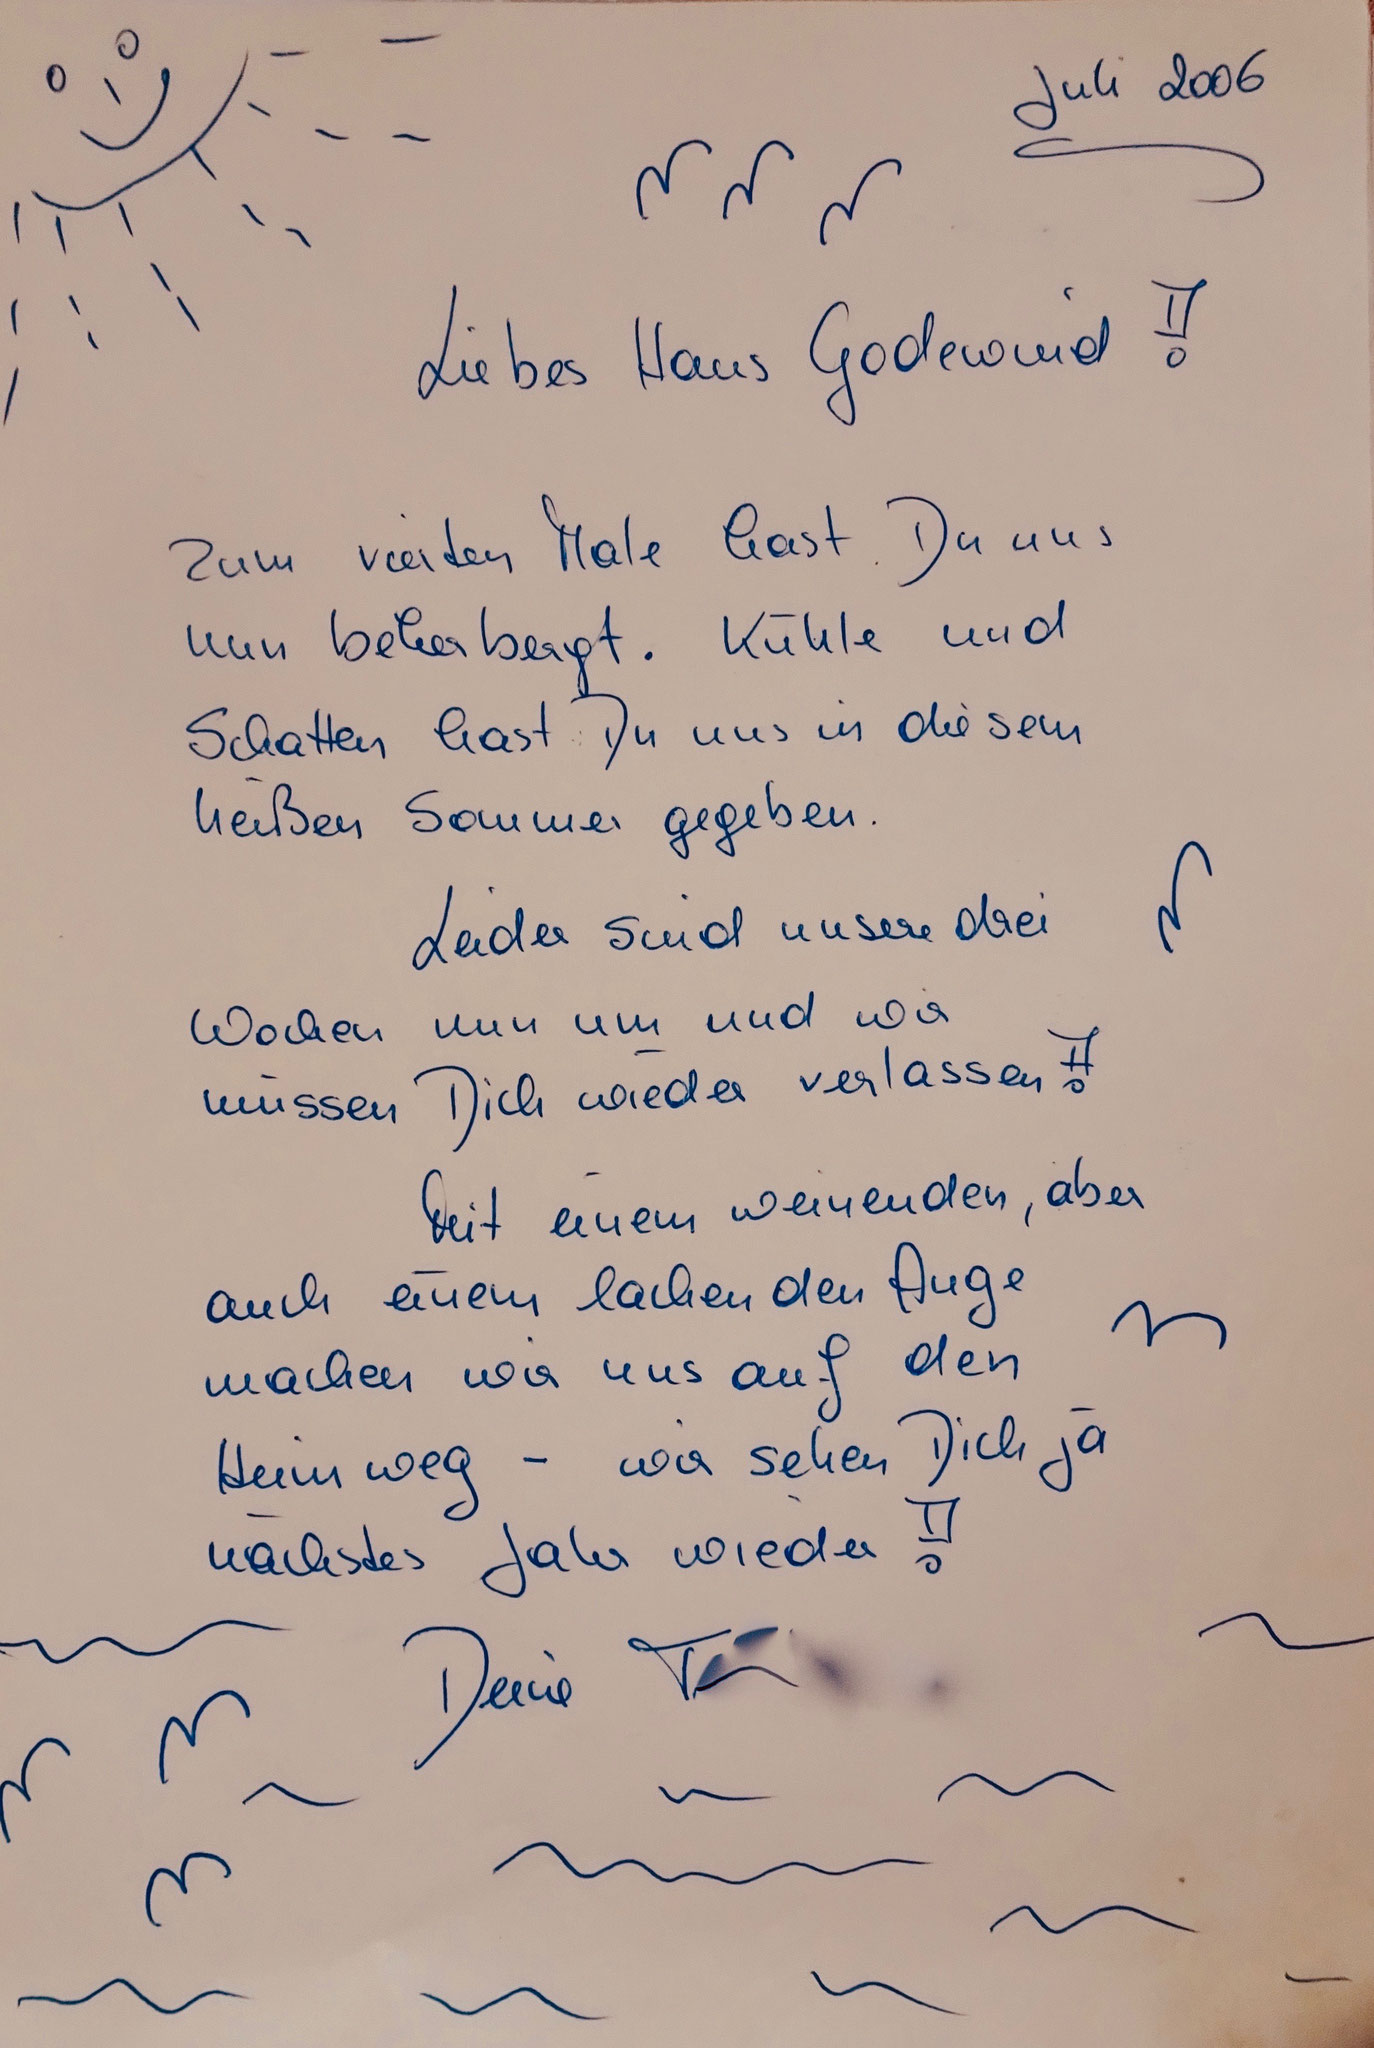 Juli 2006
Liebes Haus Godewind!!
Zum vierten Male hast Du uns
nun beherbergt. Kühle und
Schatten hast Du uns in diesem
heißen Sommer gegeben.
Leider sind unsere drei
Wochen nun um und wir
müssen Dich wieder verlassen!!
Mit einem weinenden, aber
auch einem lachenden Auge
machen wir uns auf den
Heimweg - wir sehen Dich ja
nächstes Jahr wieder!!
Deine